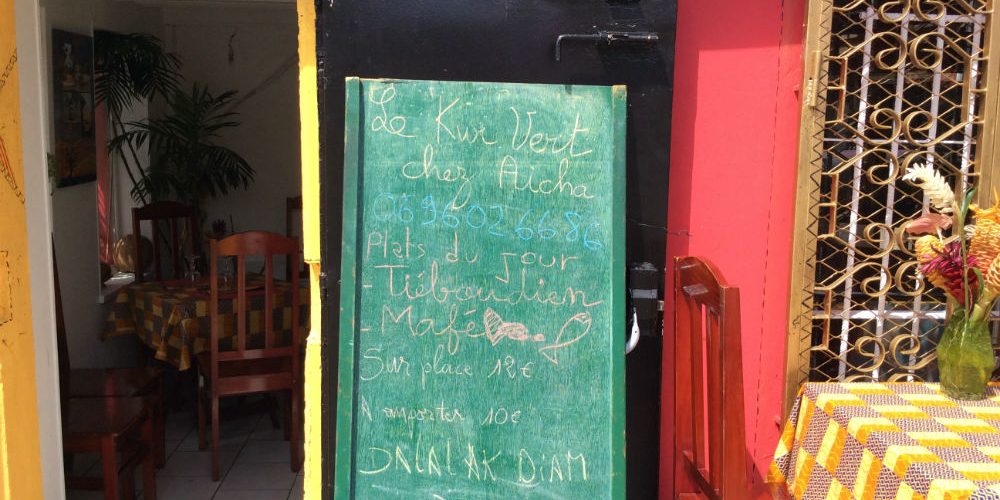 Le Kiwi Vert
chez Aicha
0696026686
Plats du jour
- Tiéboudien
- Mafé
Sur place 12€
A emporter 10€
DALAL AK DIAM